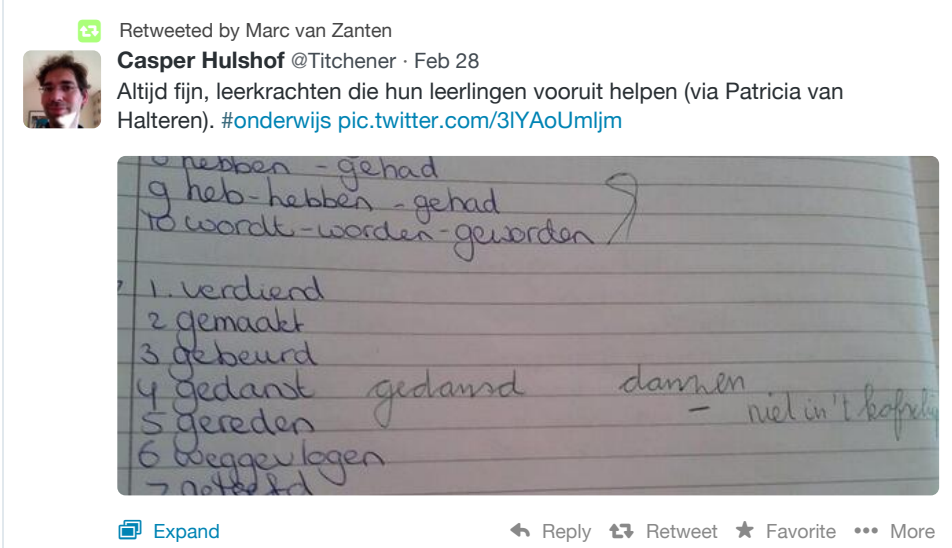 Retweeted by Marc van Zanten
Casper Hulshof @Titchener · Feb 28
Altijd fijn, leerkrachten die hun leerlingen vooruit helpen (via Patricia van
Halteren). #onderwijs pic.twitter.com/3lYAoUmljm
hebben - gehad
9 heb-hebben - gehad
10 wordt-worden-geworden
1. verdiend
2 gemaakt
3 gebeurd
4 gedanst gedansd dansen
- niet in 't kofschip
5 gereden
6 weggevlogen
7
Expand Reply Retweet Favorite More